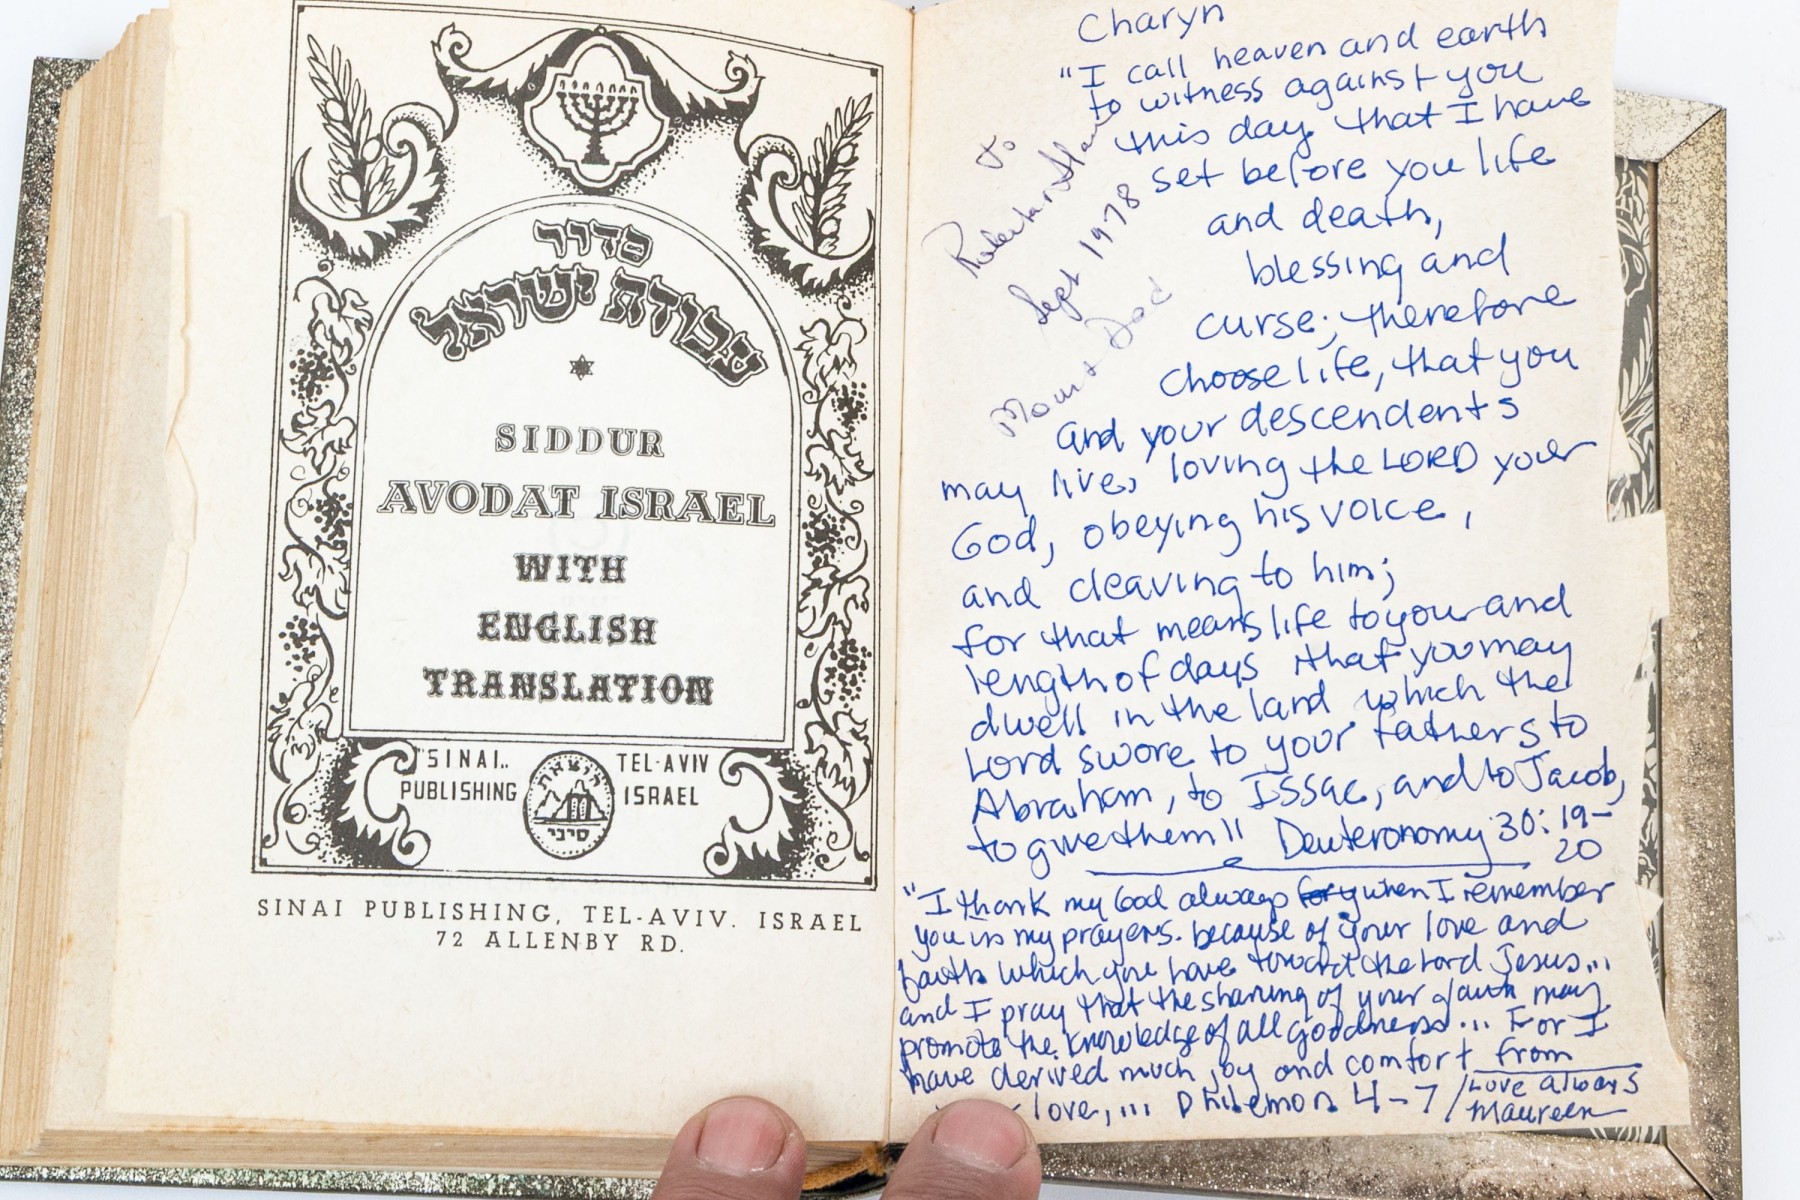 סדור
עבודת ישראל
SIDDUR
AVODAT ISRAEL
WITH
ENGLISH
TRANSLATION
"SINAI„
PUBLISHING
הוצאת
סיני
TEL-AVIV
ISRAEL
SINAI PUBLISHING, TEL-AVIV. ISRAEL
72 ALLENBY RD.
To
Sept 1978
Mom & Dad
Charyn
"I call heaven and earth
to witness against you
this day that I have
set before you life
and death,
blessing and
curse; therefore
choose life, that you
and your descendents
may live, loving the LORD your
God, obeying his voice,
and cleaving to him;
for that means life to you and
length of days that you may
dwell in the land which the
Lord swore to your fathers to
Abraham, to Issac, and to Jacob,
to give them" Deuteronomy 30:19-
20
"I thank my God always when I remember
you in my prayers. because of your love and
faith which you have toward the Lord Jesus...
and I pray that the sharing of your faith may
promote the knowledge of all goodness... For I
have derived much joy and comfort from
love,... Philemon 4-7/Love always
Maureen